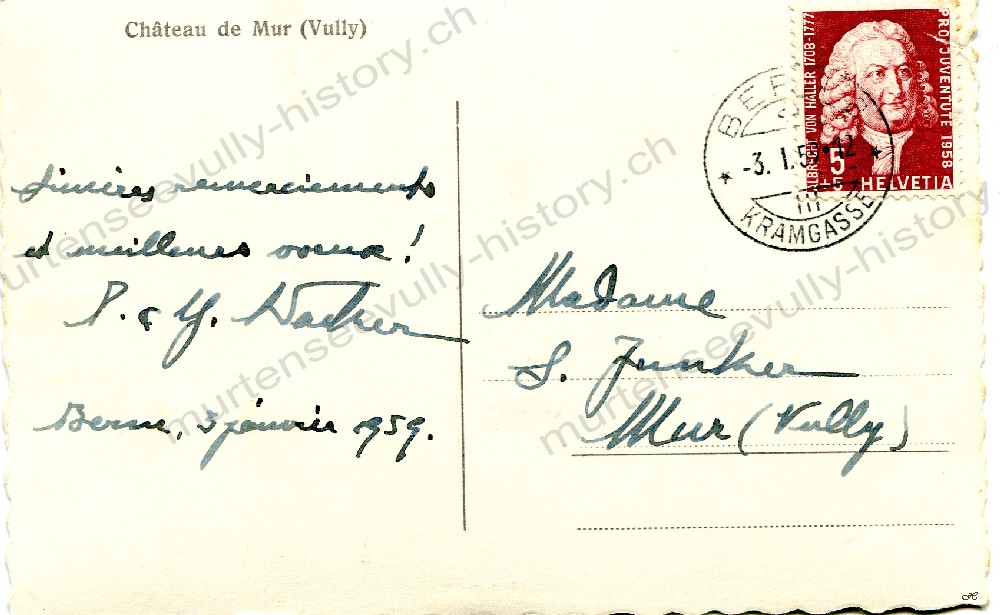 Château de Mur (Vully)
Sincères remerciements
et meilleurs voeux !
P. & Y. Wacker
Berne, 3 janvier 1959.
ALBRECHT VON HALLER 1708-1777
PRO JUVENTUTE 1958
5
+5
HELVETIA
BERN
-3. I. 59-12
III
KRAMGASSE
Madame
S. Junker
Mur (Vully)
murtenseevully-history.ch
murtenseevully-history.ch
murtenseevully-history.ch
murtenseevully-history.ch